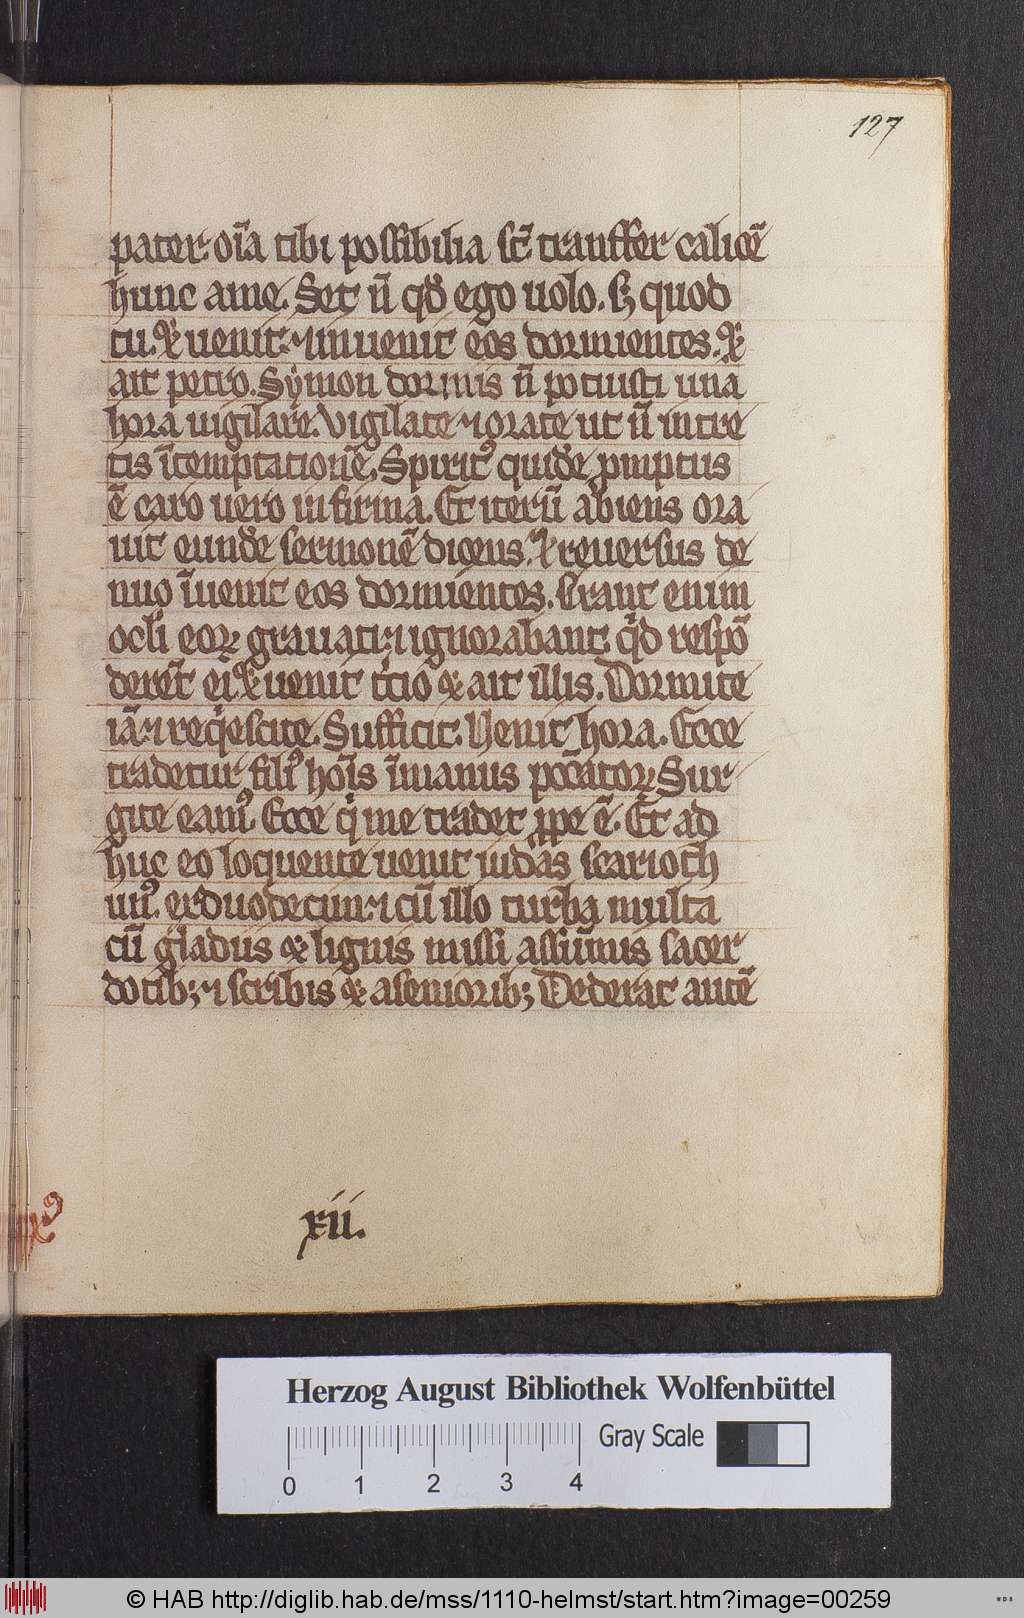 127
pater. oı̄a tibi possibilia st̄ transfer calicē
hunc a me. Set n̄ qd̄ ego uolo. sꝫ quod
tu. ⁊ uenit. ⁊ inuenit eos dormientes. ⁊
ait petro. Symon dormis n̄ potuisti unā
hora uigilare. Vigilate ⁊ orate ut n̄ intre
tis ītemptationē. Spiritꝰ quidē ꝓmptus
ē caro uero infirma. Et iterū abiens ora
uit eundē sermonē dicens. ⁊ reuersus de
nuo īuenit eos dormientes. Erant enim
ocl̄i eoꝝ grauati. ⁊ ignorabant qͥd respō
derēt ei. ⁊ uenit tͨcio ⁊ ait illis. Dormite
iā. ⁊ reqͥescite. Sufficit. Uenit hora. Ecce
tradetur filiꝰ hoı̄s īmanus pcc̄atoꝝ Sur
gite eamꝰ. Ecce qͥ me tradet ꝓpe ē. Et ad
huc eo loquente uenit iudas scarioth
unꝰ. exduodecim. ⁊ cū illo turba multa
cū gladiis ⁊ lignis missi assūmis sacer
dotibꝫ. ⁊ scribis ⁊ aseniorибꝫ Dederat autē
xii.
Herzog August Bibliothek Wolfenbüttel
Gray Scale
0 1 2 3 4
© HAB http://diglib.hab.de/mss/1110-helmst/start.htm?image=00259